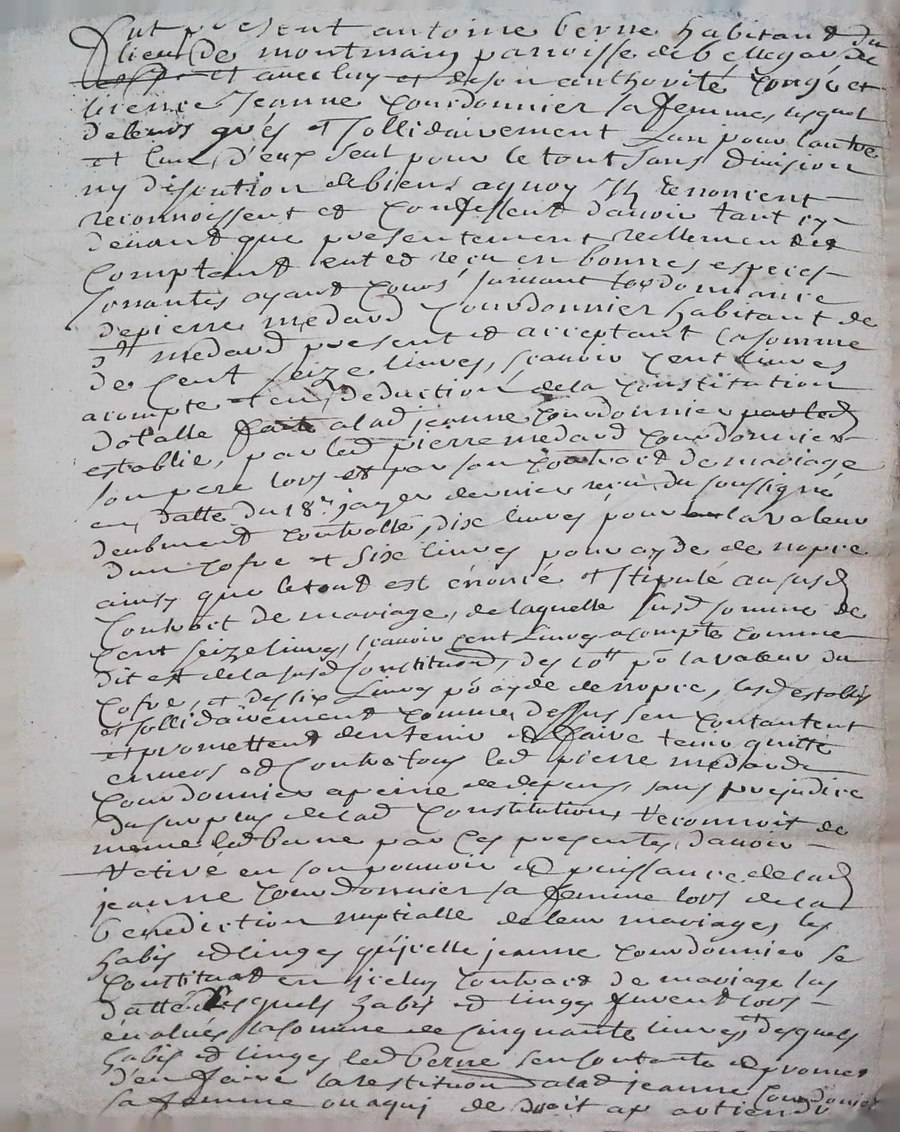 fut present antoine berne habitant du
lieu de montmain parroisse de bellegarde
et avec luy et de son authorité congé et
licence Jeanne Courdonnier sa femme, lesquels
de leurs grés et sollidairement l'un pour l'autre
et l'un d'eux seul pour le tout sans division
ny discution de biens aquoy Ils renoncent
reconnoissent et confessent d'avoir tant cy
devant que presentement reellement et
comptant eut et reçu en bonnes especes
sonnantes ayant cours suivant l'ordonnance
de pierre medard Courdonnier habitant de
St medard present et acceptant la somme
de cent seize livres, sçavoir cent livres
acompte et en deduction de la Constitution
dotalle faite a lad jeanne Courdonnier
establie, par led pierre medard Courdonnier
son pere lors et par son contract de mariage
en datte du 18e janvier dernier reçu du soussigné
deubment controllé, dix livres pour la valeur
d'un cofre et six livres pour ayde de nopce
ainsy que le tout est énoncé et stipulé au susd
Contract de mariage, de laquelle susd somme de
cent seize livres, sçavoir cent livres acompte comme
dit est de la susd constitution, des 10ll po la valeur du
cofre, et des six livres po ayde de nopce, lesd establis
et sollidairement comme dessus s'en contantent
et promettent d'en tenir et faire tenir quitte
envers et contre tous led pierre medard
Courdonnier a peine de depens, sans prejudice
du surplus de lad Constitution, reconnoit de
même led berne par ces presentes, d'avoir
retiré en son pouvoir et puissance de lad
jeanne Courdonnier sa femme lors de la
benediction nuptialle de leur mariage, les
habis et linges qu'jcelle jeanne Courdonnier se
constituat en jceluy contract de mariage sus
datté lesquels habis et linges furent lors
évalués la somme de cinquante livres, desquels
habis et linges led berne s'en contante et promet
d'en faire la restitution a lad jeanne Courdonnier
sa femme ou a qui de droit ap artiendra